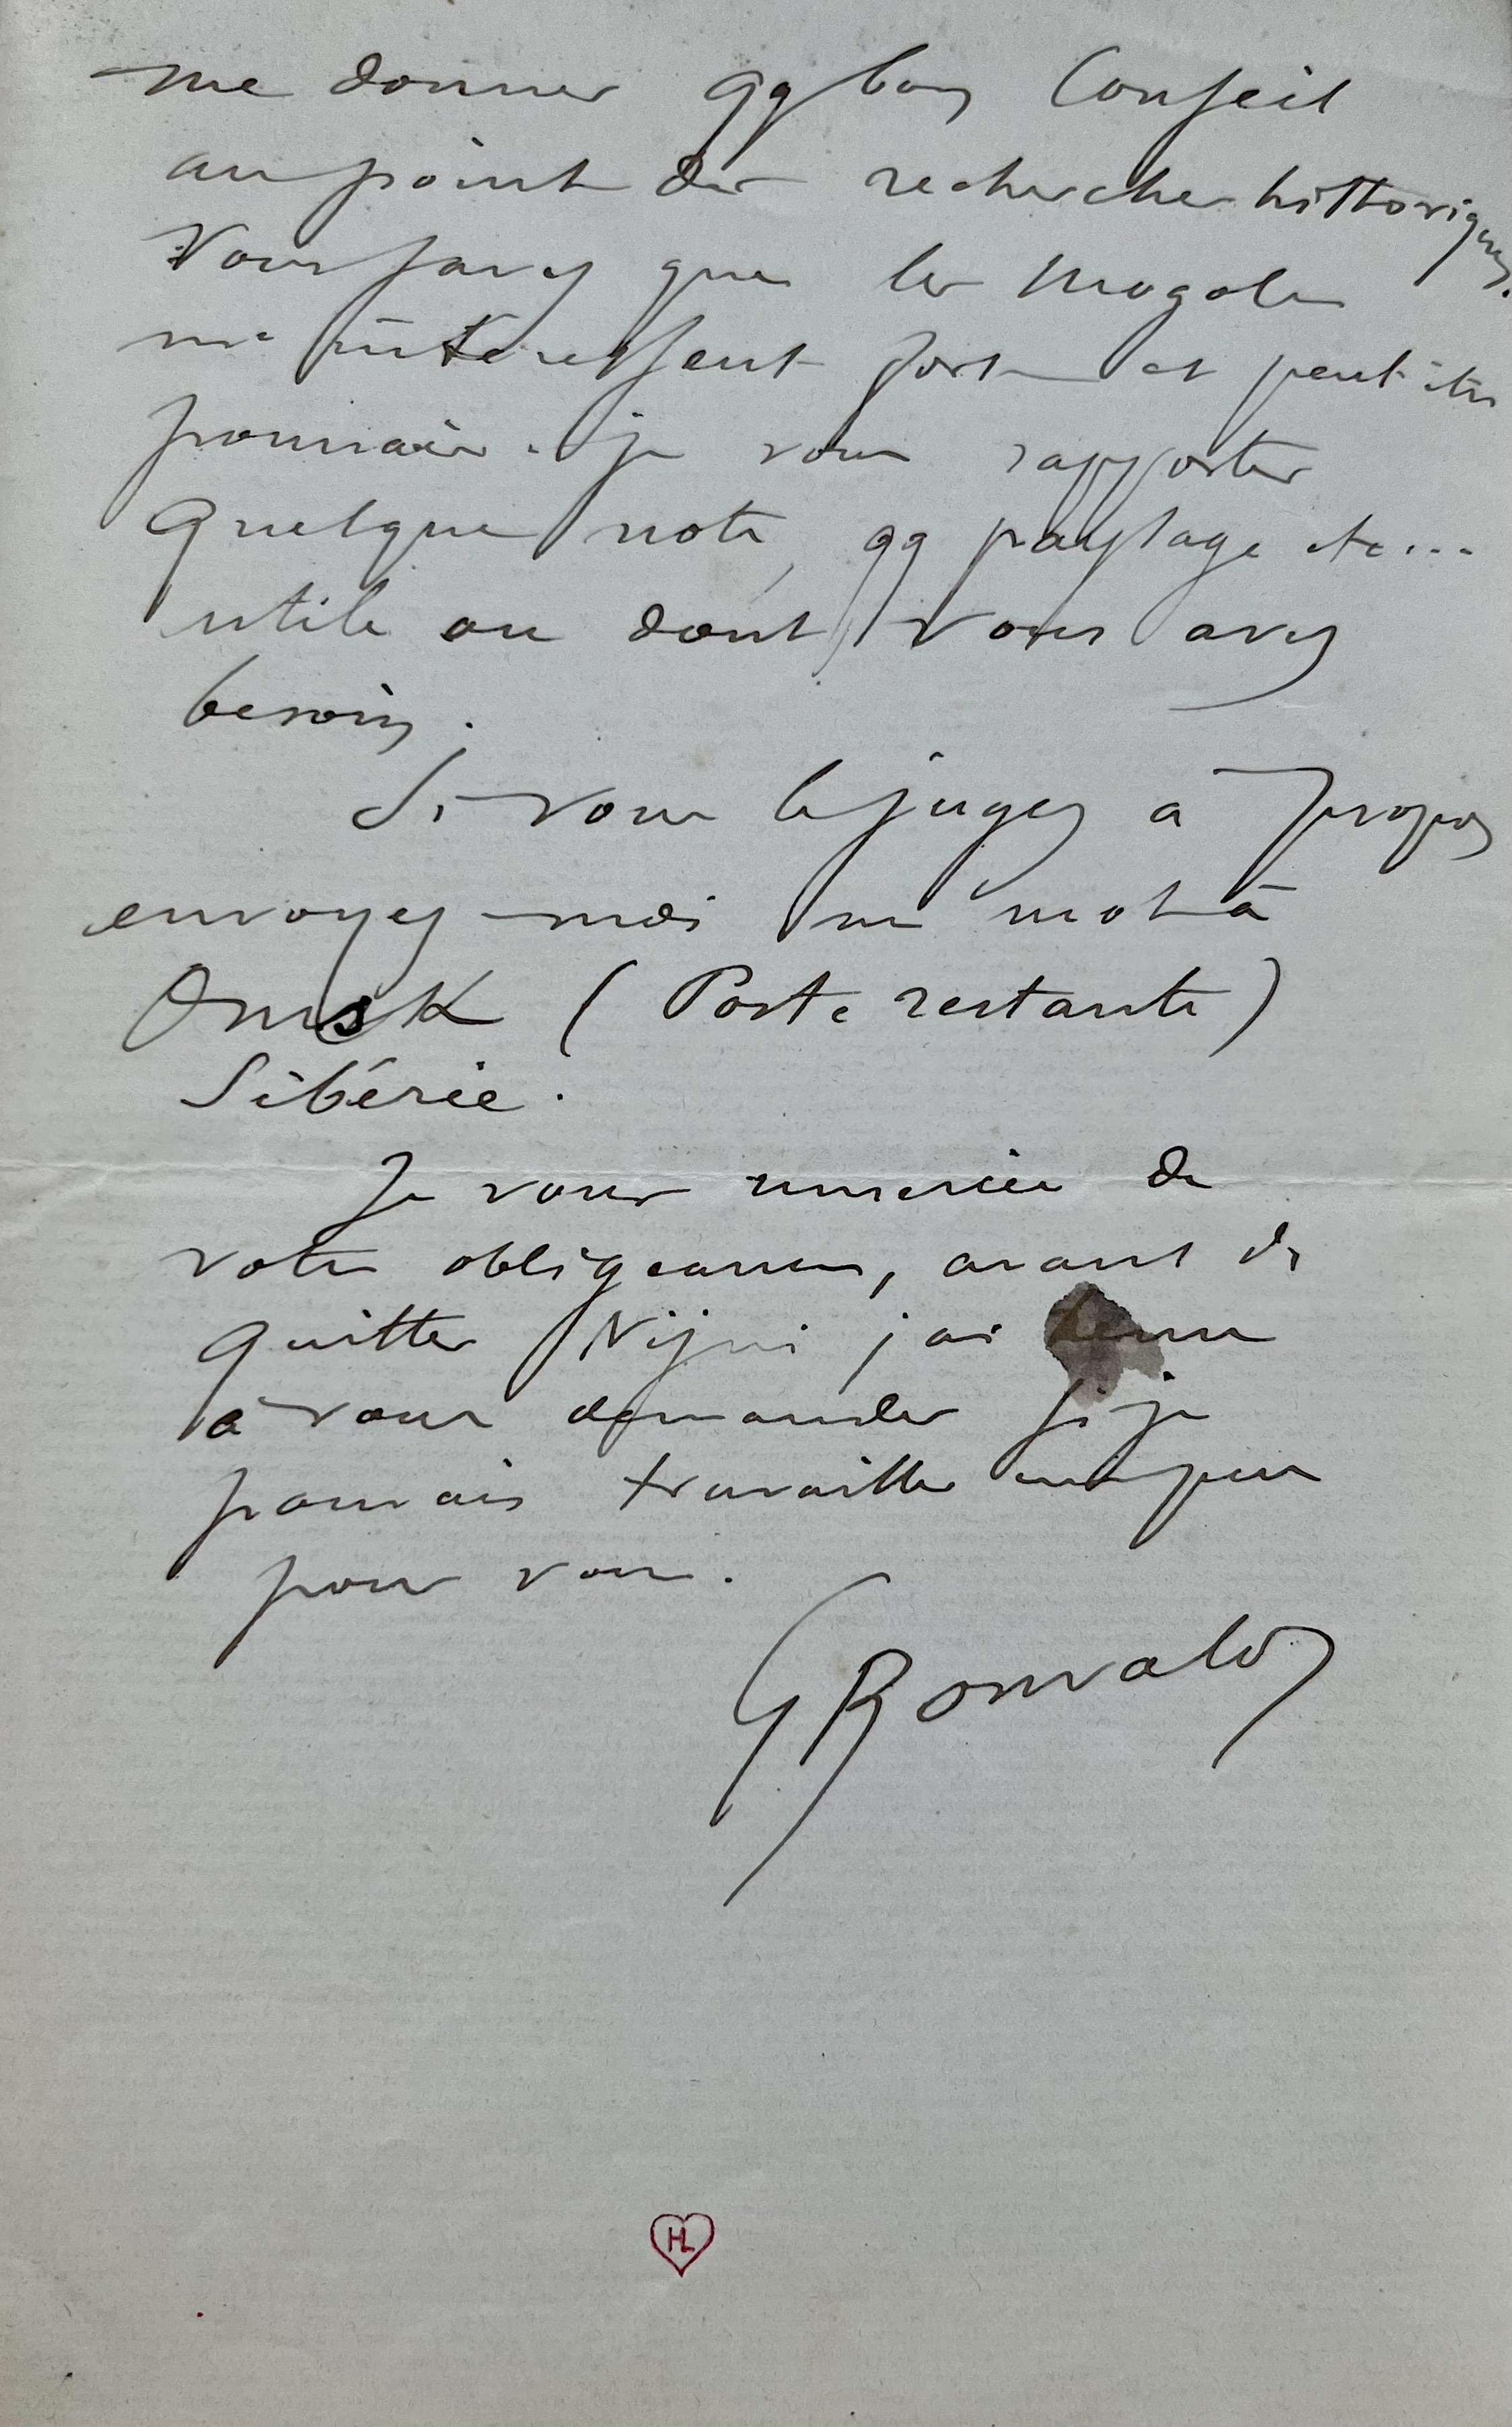 me donner qq bons Conseils
au point des recherches historiques.
Vous savez que les Mogols
m'intéressent fort et peut être
pourrais-je vous rapporter
quelque note, qq paysage etc...
utile ou dont vous avez
besoin.
Si vous le jugez à propos
envoyez-moi un mot à
Omsk (Poste restante)
Sibérie.
Je vous remercie de
votre obligeance, avant de
quitter Nijni j'ai tenu
à vous demander si je
pouvais travailler un peu
pour vous.
G Bonvalot
HL